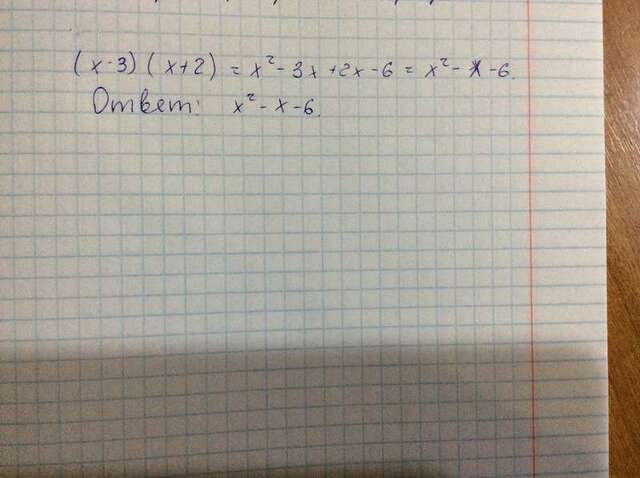 (x-3)(x+2) = x² - 3x + 2x - 6 = x² - x - 6.
Ответ: x² - x - 6.